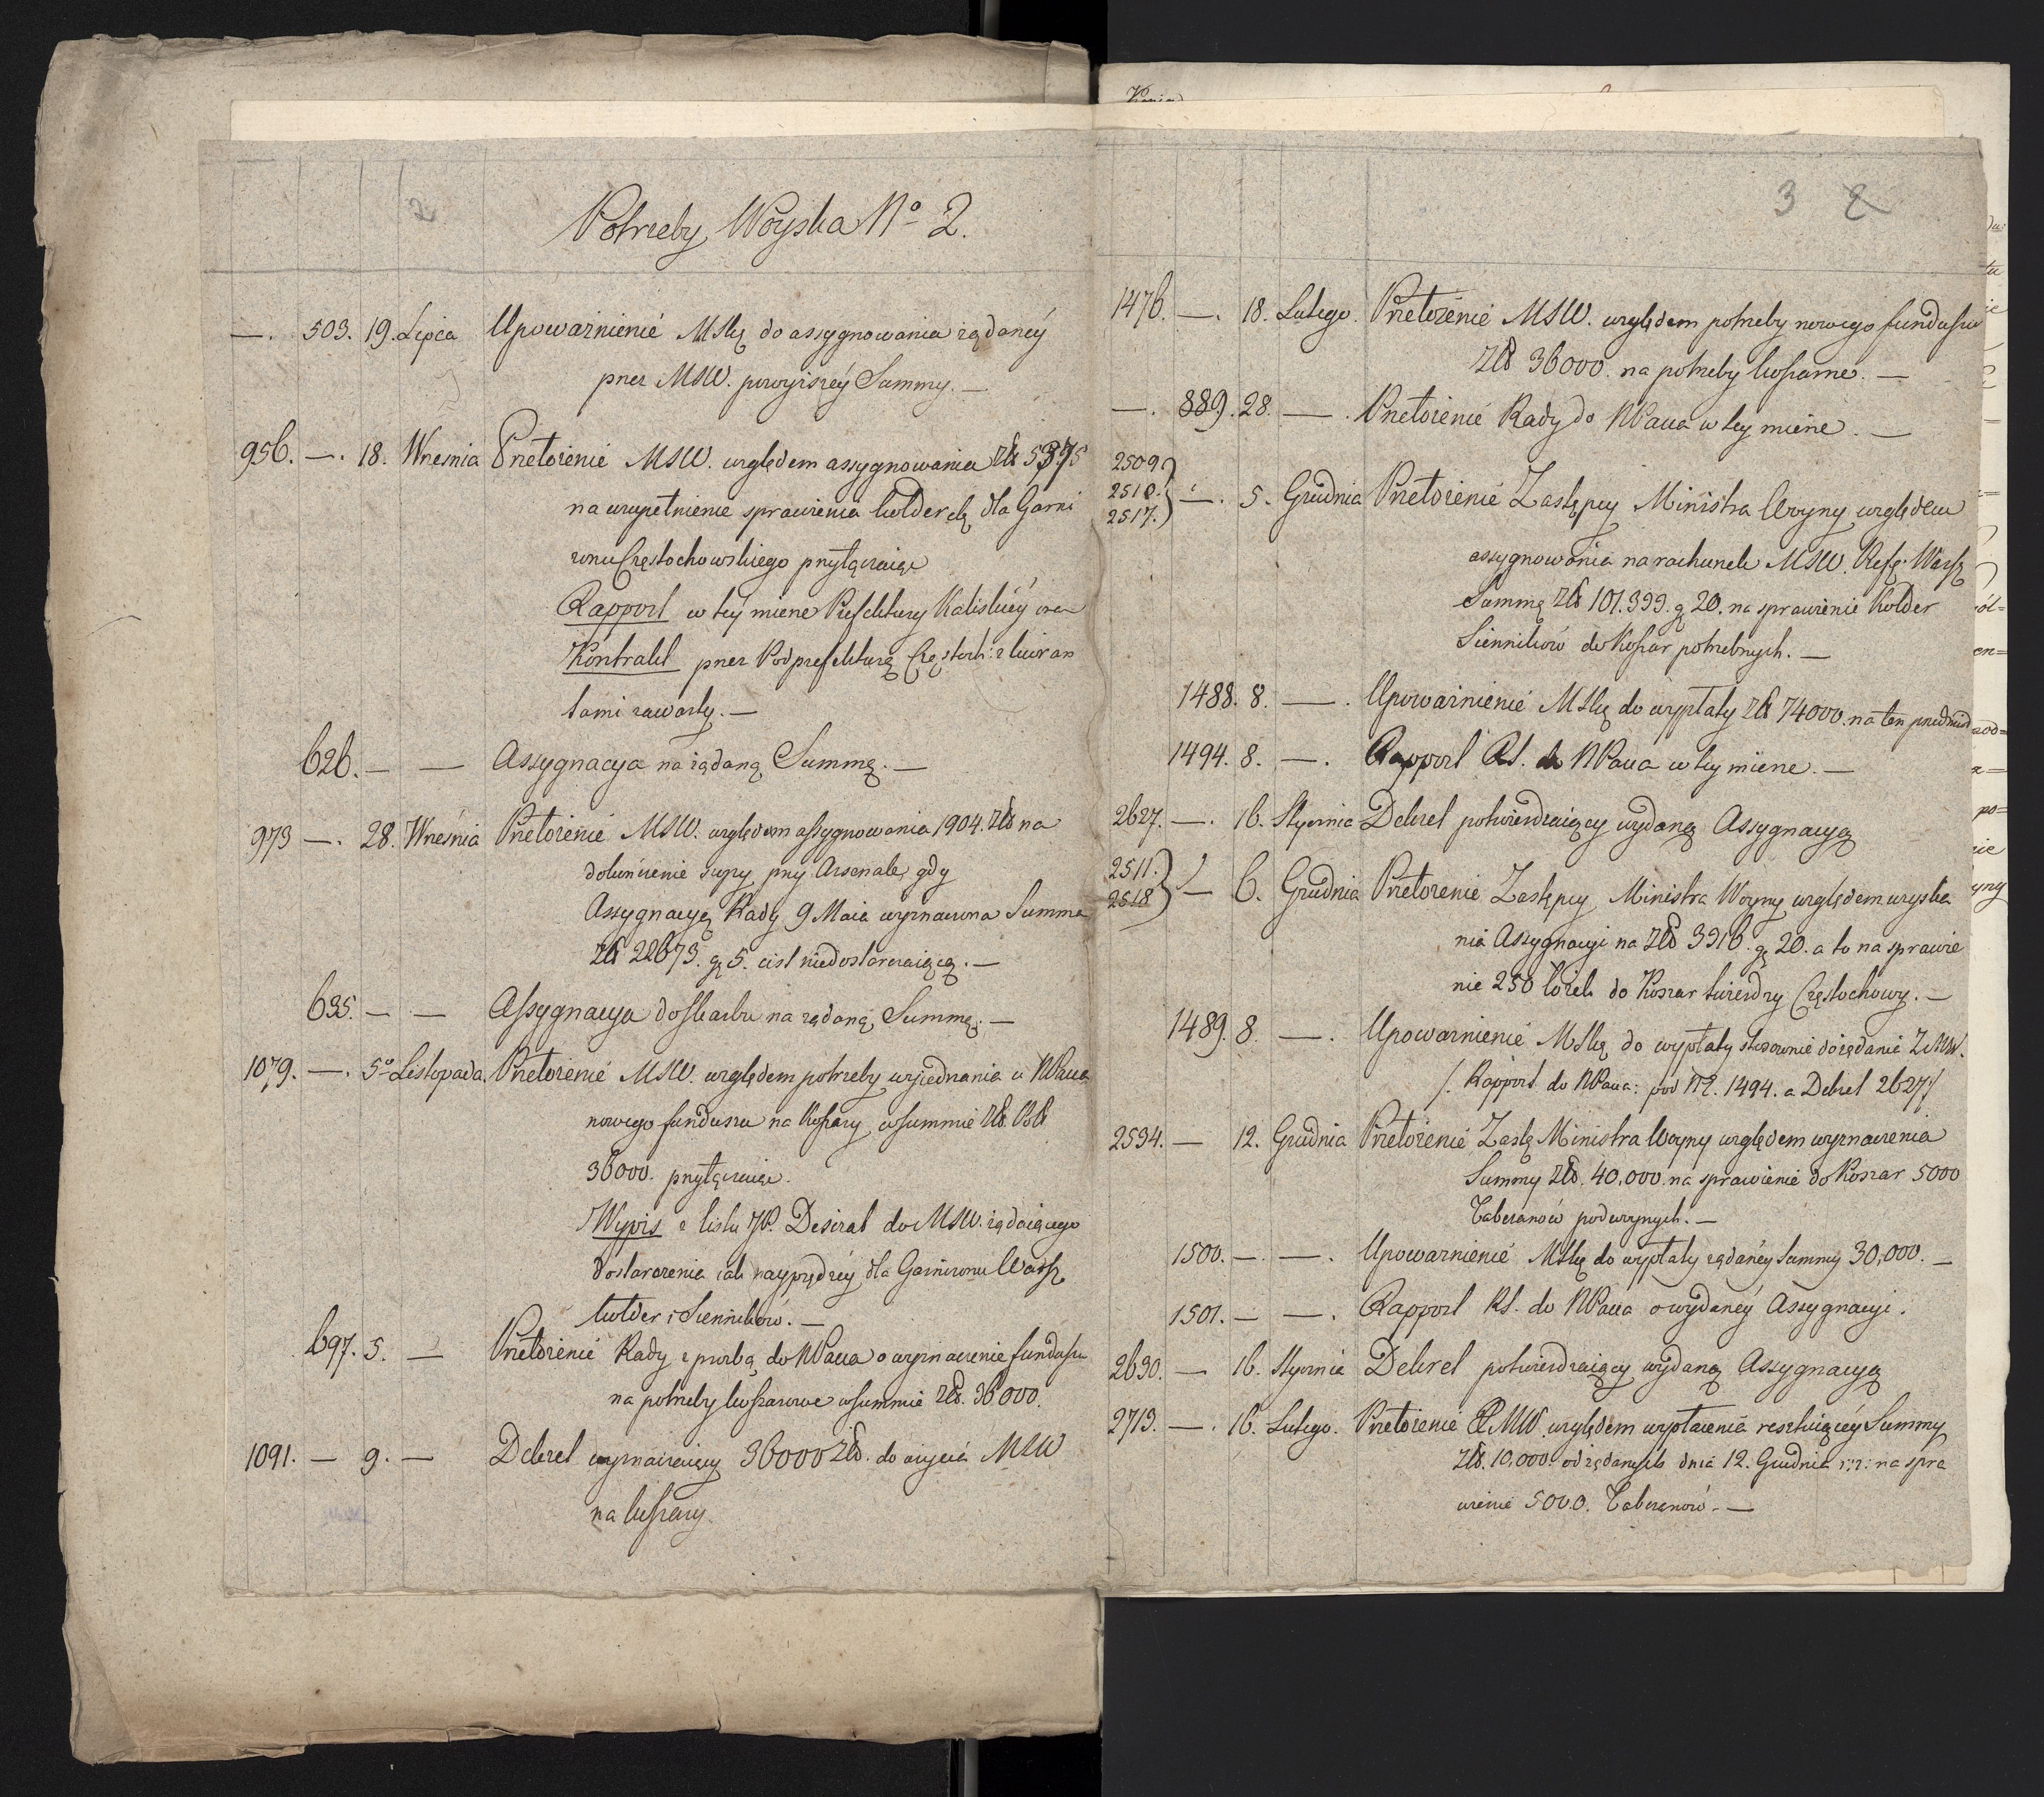 2
Potrzeby Woyska No 2.
—. 503. 19. Lipca Upoważnienié MSkę do assygnowania żądanéy
przez MSW. powyiszéy Summy. —
956. —. 18. Wrzesnia Przełożenié MSW. względem assygnowania Złł 5375
na uzupełnienie sprawienia kołder etc dla Garni
zonu Częstochowskiego przyłączaiąc
Rapport w téy mierze Prefektury Kaliskiéy oraz
Kontrakt przez Podprefekturę Częstoch: z liwran
tami zawarty. —
626. — — Assygnacya na żądaną Summę. —
973 —. 28. Września Przełożenié MSW. względem assygnowania 1904. Złł na
dokończenie szopy przy Arsenale, gdy
Assygnacyą Rady 9 Maia wyznaczona Summa
Złł 22673. g 5. iest niedostarczaiącą. —
635. — — Assygnacya do Skarbu na żądaną Summę. —
1079. —. 5o Listopada. Przełożenié MSW. względem potrzeby wyiednania u NPana
nowego funduszu na Koszary w summie Złł.
36000. przyłączaiąc.
Wypis z listu JP. Desirat do MSW. żądaiącego
dostarczenia iak nayprędzéy dla Garnizonu Warsz.
kołder i Sienników. —
697. 5. — Przełożenié Rady z prozbą do NPana o wyznaczenie funduszu
na potrzeby koszarowe w summie Złł. 36000.
1091. — 9. — Dekret wyznaczaiący 36000 Złł. do użycia MSW
na koszary.
3 2
1476. —. 18. Lutego. Przełożenié MSW. względem potrzeby nowego funduszu
Złł 36000. na potrzeby koszarne. —
—. 889. 28. —. Przełożenié Rady do NPana w téy mierze. —
2509.
2510. —. 5. Grudnia Przełożenié Zastępcy Ministra Woyny względem
2517.
assygnowania na rachunek MSW. Warsz
Summę Złł 101.399. g 20. na sprawienie Kołder
Sienników do Koszar potrzebnych. —
1488. 8. —. Upoważnienié MSkę do wypłaty Złł 74000. na ten przedmiot
1494. 8. —. Rapport RS. do NPana w téy mierze. —
2627. —. 16. Stycznia Dekret potwierdzaiący wydaną Assygnacyą
2511.
2518 — 6. Grudnia Przełożenié Zastępcy Ministra Woyny względem uzyska
nia Assygnacyi na Złł 3916. g 20. a to na sprawie
nie 250 łóżek do Koszar twierdzy Częstochowy. —
1489. 8. —. Upoważnienié MSkę do wypłaty stosownie do żądania ZMW.
/. Rapport do NPana: pod No. 1494. a Dekret 2627/
2534. — 12. Grudnia Przełożenié Zastę Ministra Woyny względem wyznaczenia
Summy Złł. 40,000. na sprawienié do Koszar 5000
Taberanów podwoynych. —
1500. —. —. Upoważnienié MSkę do wypłaty żądanéy Summy 30,000. —
1501. — —. Rapport RS. do NPana o wydanéy Assygnacyi.
2630. — 16. Stycznia Dekret potwierdzaiący wydaną Assygnacyą
2713. —. 16. Lutego. Przełożenié MW. względem wypłacenia resztuiącéy Summy
Złł. 10,000. od żądanych dnia 12. Grudnia r: z: na spra
wienie 5000. Taberanów. —